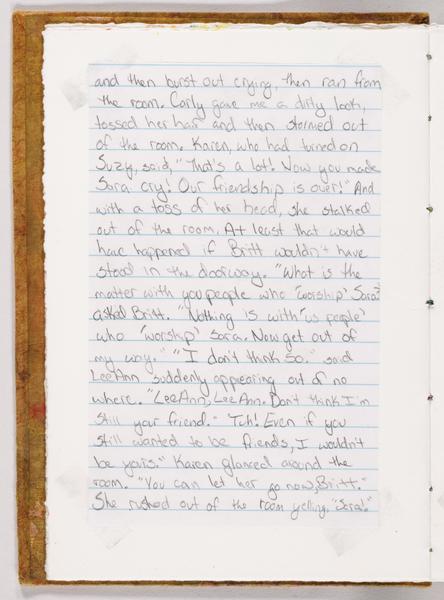 and then burst out crying, then ran from
the room. Carly gave me a dirty look,
tossed her hair and then stormed out
of the room. Karen, who had turned on
Suzy, said, "That's a lot! Now you made
Sara cry! Our friendship is over!" And
with a toss of her head, she stalked
out of the room. At least that would
have happened if Britt wouldn't have
stood in the doorway. "What is the
matter with you people who 'worship' Sara?"
asked Britt. "Nothing is with 'us people'
who 'worship' Sara. Now get out of
my way." "I don't think so." said
LeeAnn suddenly appearing out of no
where. "LeeAnn, LeeAnn. Don't think I'm
still your friend." "Tch! Even if you
still wanted to be friends, I wouldn't
be yours." Karen glanced around the
room. "You can let her go now, Britt."
She rushed out of the room yelling, "Sara!"